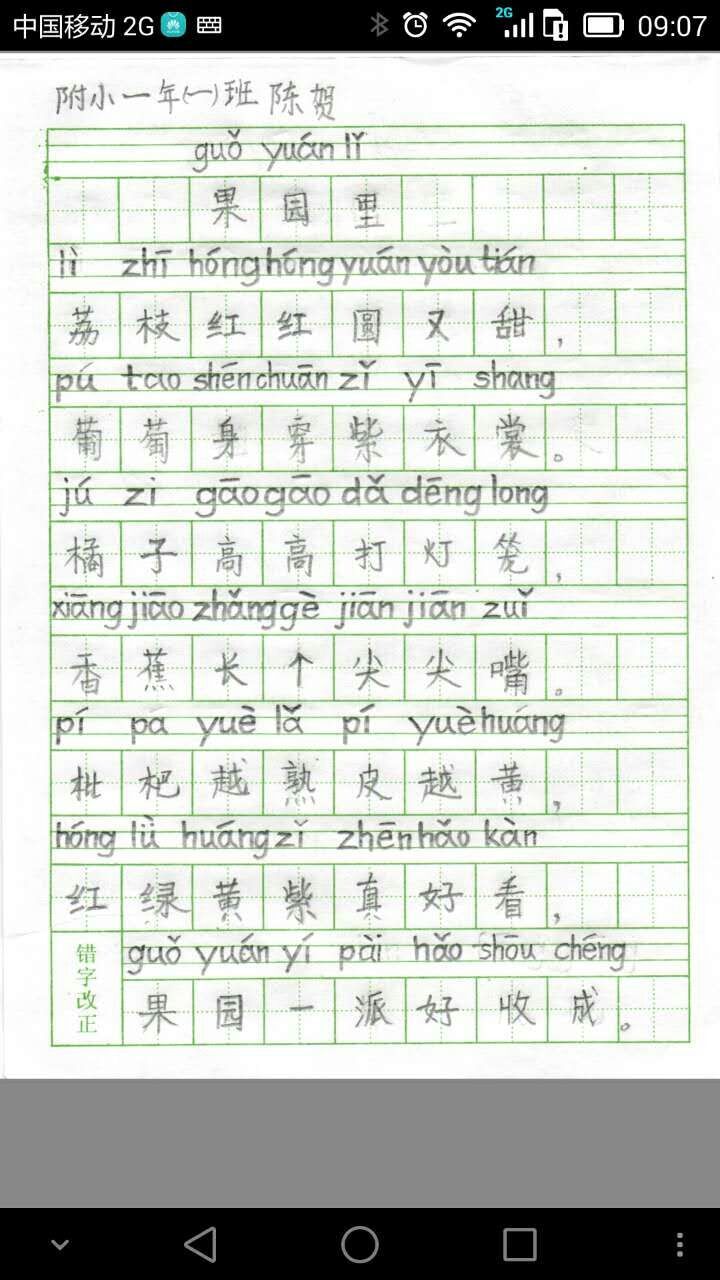 中国移动 2G 2G 09:07
附小一年(一)班 陈贺
guǒ yuán lǐ
果园里
lì zhī hóng hóng yuán yòu tián
荔枝红红圆又甜，
pú tao shēn chuān zǐ yī shang
葡萄身穿紫衣裳。
jú zi gāo gāo dǎ dēng long
橘子高高打灯笼，
xiāng jiāo zhǎng gè jiān jiān zuǐ
香蕉长个尖尖嘴。
pí pa yuè lǎ pí yuè huáng
枇杷越熟皮越黄，
hóng lǜ huáng zǐ zhēn hǎo kàn
红绿黄紫真好看，
guǒ yuán yí pài hǎo shōu chéng
错字改正
果园一派好收成。